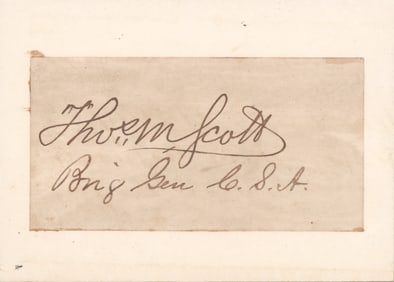 Thos. M Scott
Brig Gen C. S. A.